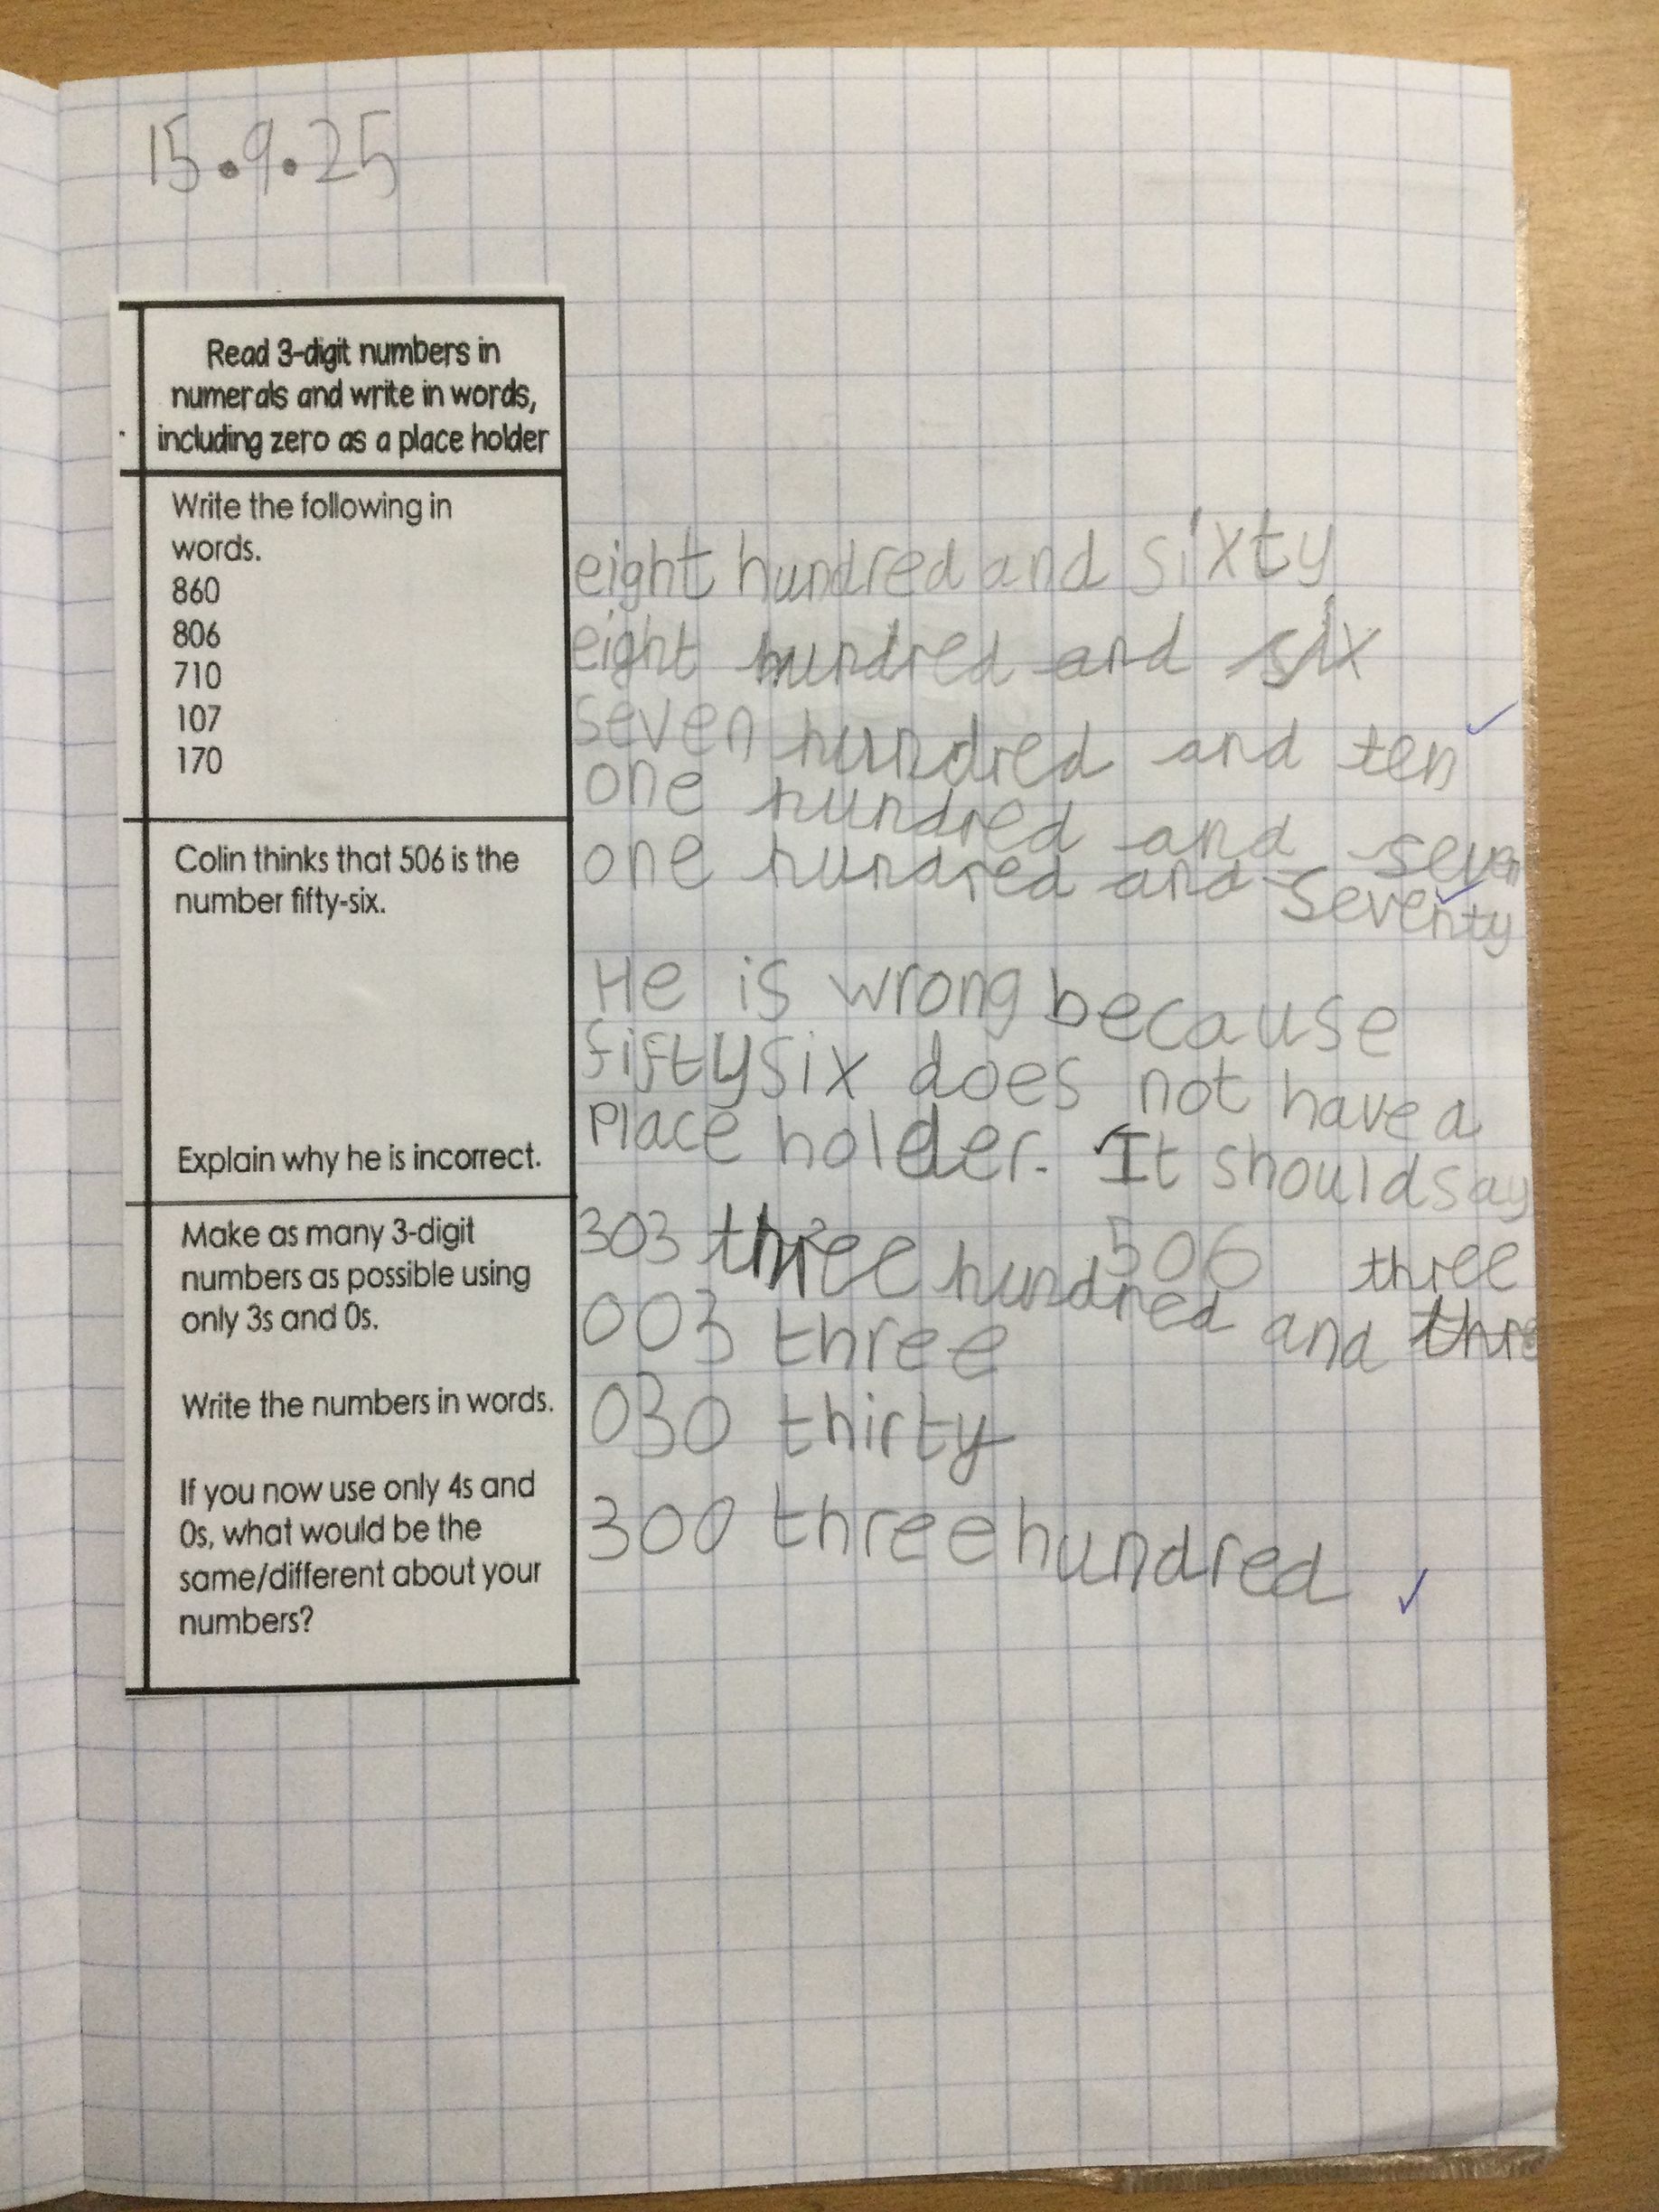 15.9.25
Read 3-digit numbers in
numerals and write in words,
including zero as a place holder
Write the following in
words.
860
806
710
107
170
eight hundred and sixty
eight hundred and six
seven hundred and ten
one hundred and seven
one hundred and seventy
Colin thinks that 506 is the
number fifty-six.
Explain why he is incorrect.
He is wrong because
fiftysix does not have a
place holder. It should say
506
Make as many 3-digit
numbers as possible using
only 3s and 0s.
Write the numbers in words.
If you now use only 4s and
0s, what would be the
same/different about your
numbers?
303 three hundred and three
three
003 three
030 thirty
300 three hundred